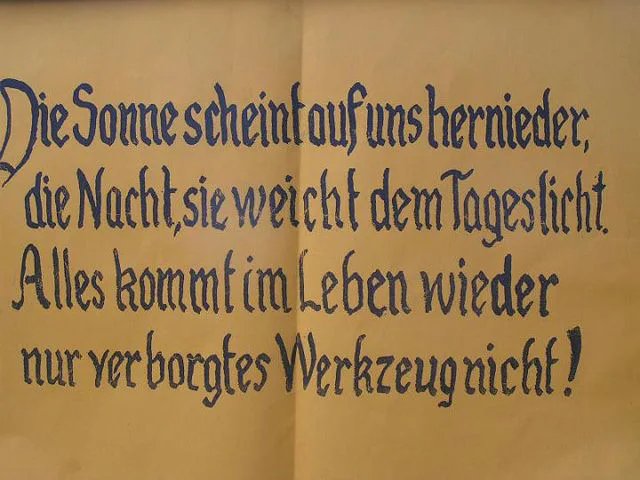 Die Sonne scheint auf uns hernieder,
die Nacht, sie weicht dem Tageslicht.
Alles kommt im Leben wieder
nur verborgtes Werkzeug nicht!